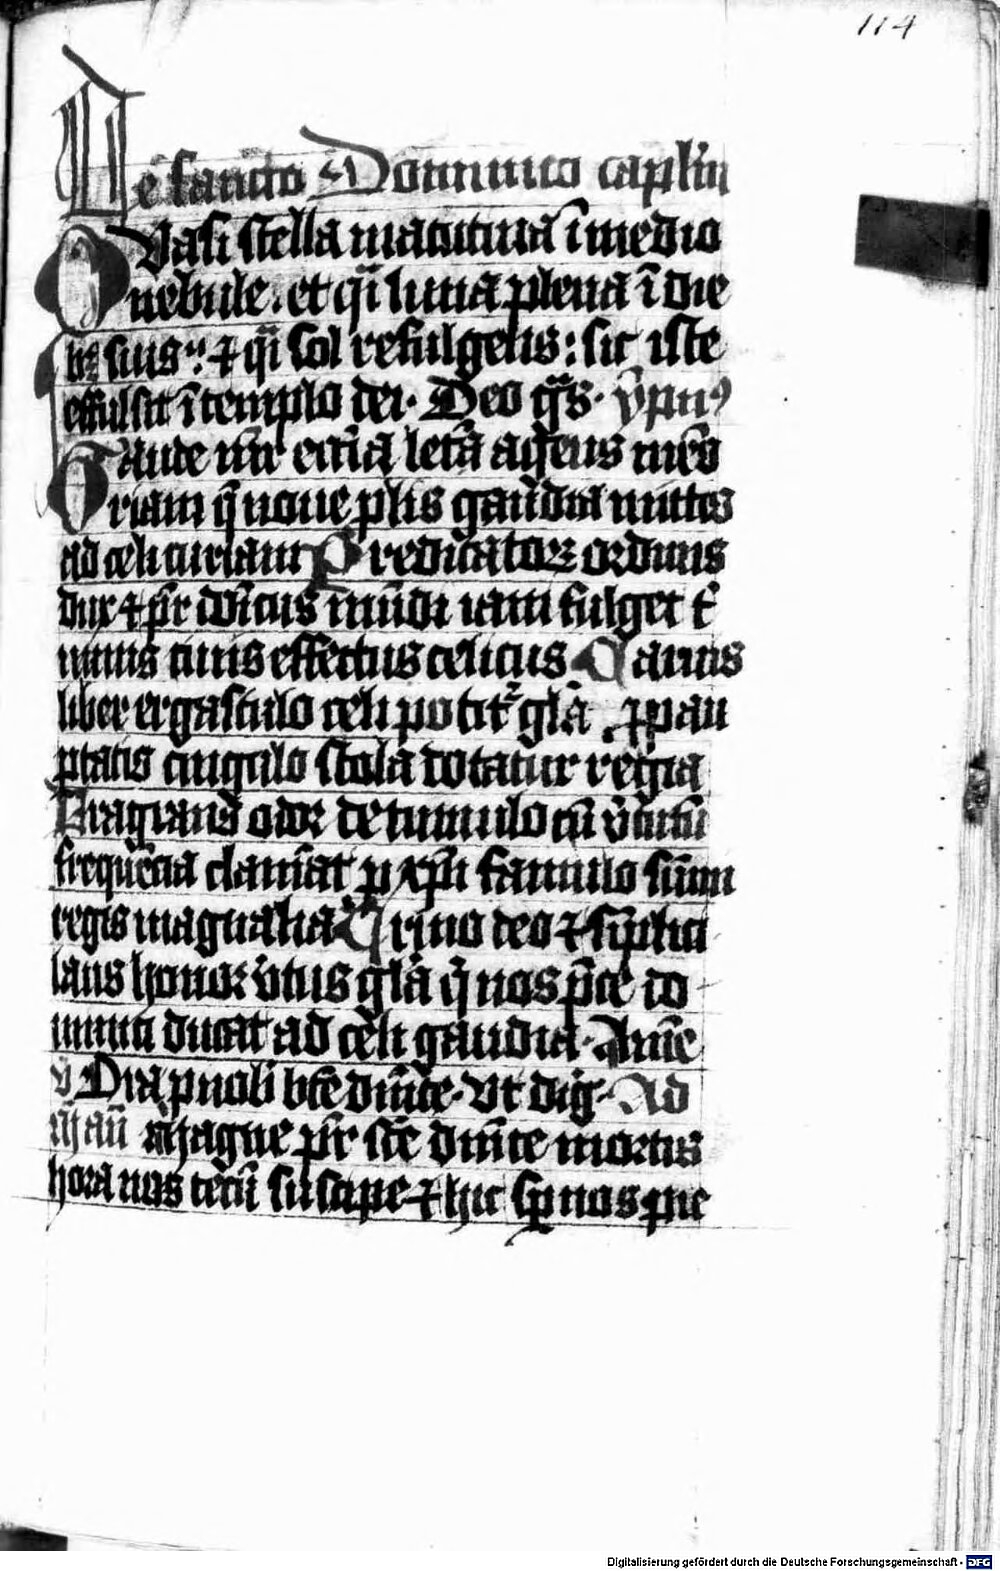 114
De sancto Dominico caplm
Quasi stella matutina ī medio
nebule. et q̄i luna plena ī die
bꝫ suis: ⁊ q̄i sol refulgens: sic iste
effulsit ī templo dei. Deo gr̄s. ẏpnꝰ
Gaude mr̄ eccīa letā agens mēo
riam q̄ noue plis gaudia mittis
ad celi curiam Predicatoꝝ ordinis
dux ⁊ pr̄ dn̄icus mūdi iam fulget t̄
minis ciuis effectus celicus Carnis
liber ergastulo celi potit᷑ gl̄a ꝓ pau
ꝑtatis cingulo stola dotatur regia
Fragrans odoꝛ de tumulo cū v̄tutū
freque̅cia clamāt ꝓ xp̄i famulo sūmi
regis magnalia Trino deo ⁊ simplici
laus honoꝛ v̓tus gl̄a q̄ nos p̄ce do
minici ducat ad celi gaudia. Amē
v̓ Ora p nob̄ b̄te dn̄ice. Ut dig̓. Ad
m̄ an̄ Magne pr̄ sc̄e dn̄ice moꝛtis
hora nos tecū suscipe ⁊ hic sꝑ nos pie
Digitalisierung gefördert durch die Deutsche Forschungsgemeinschaft - DFG